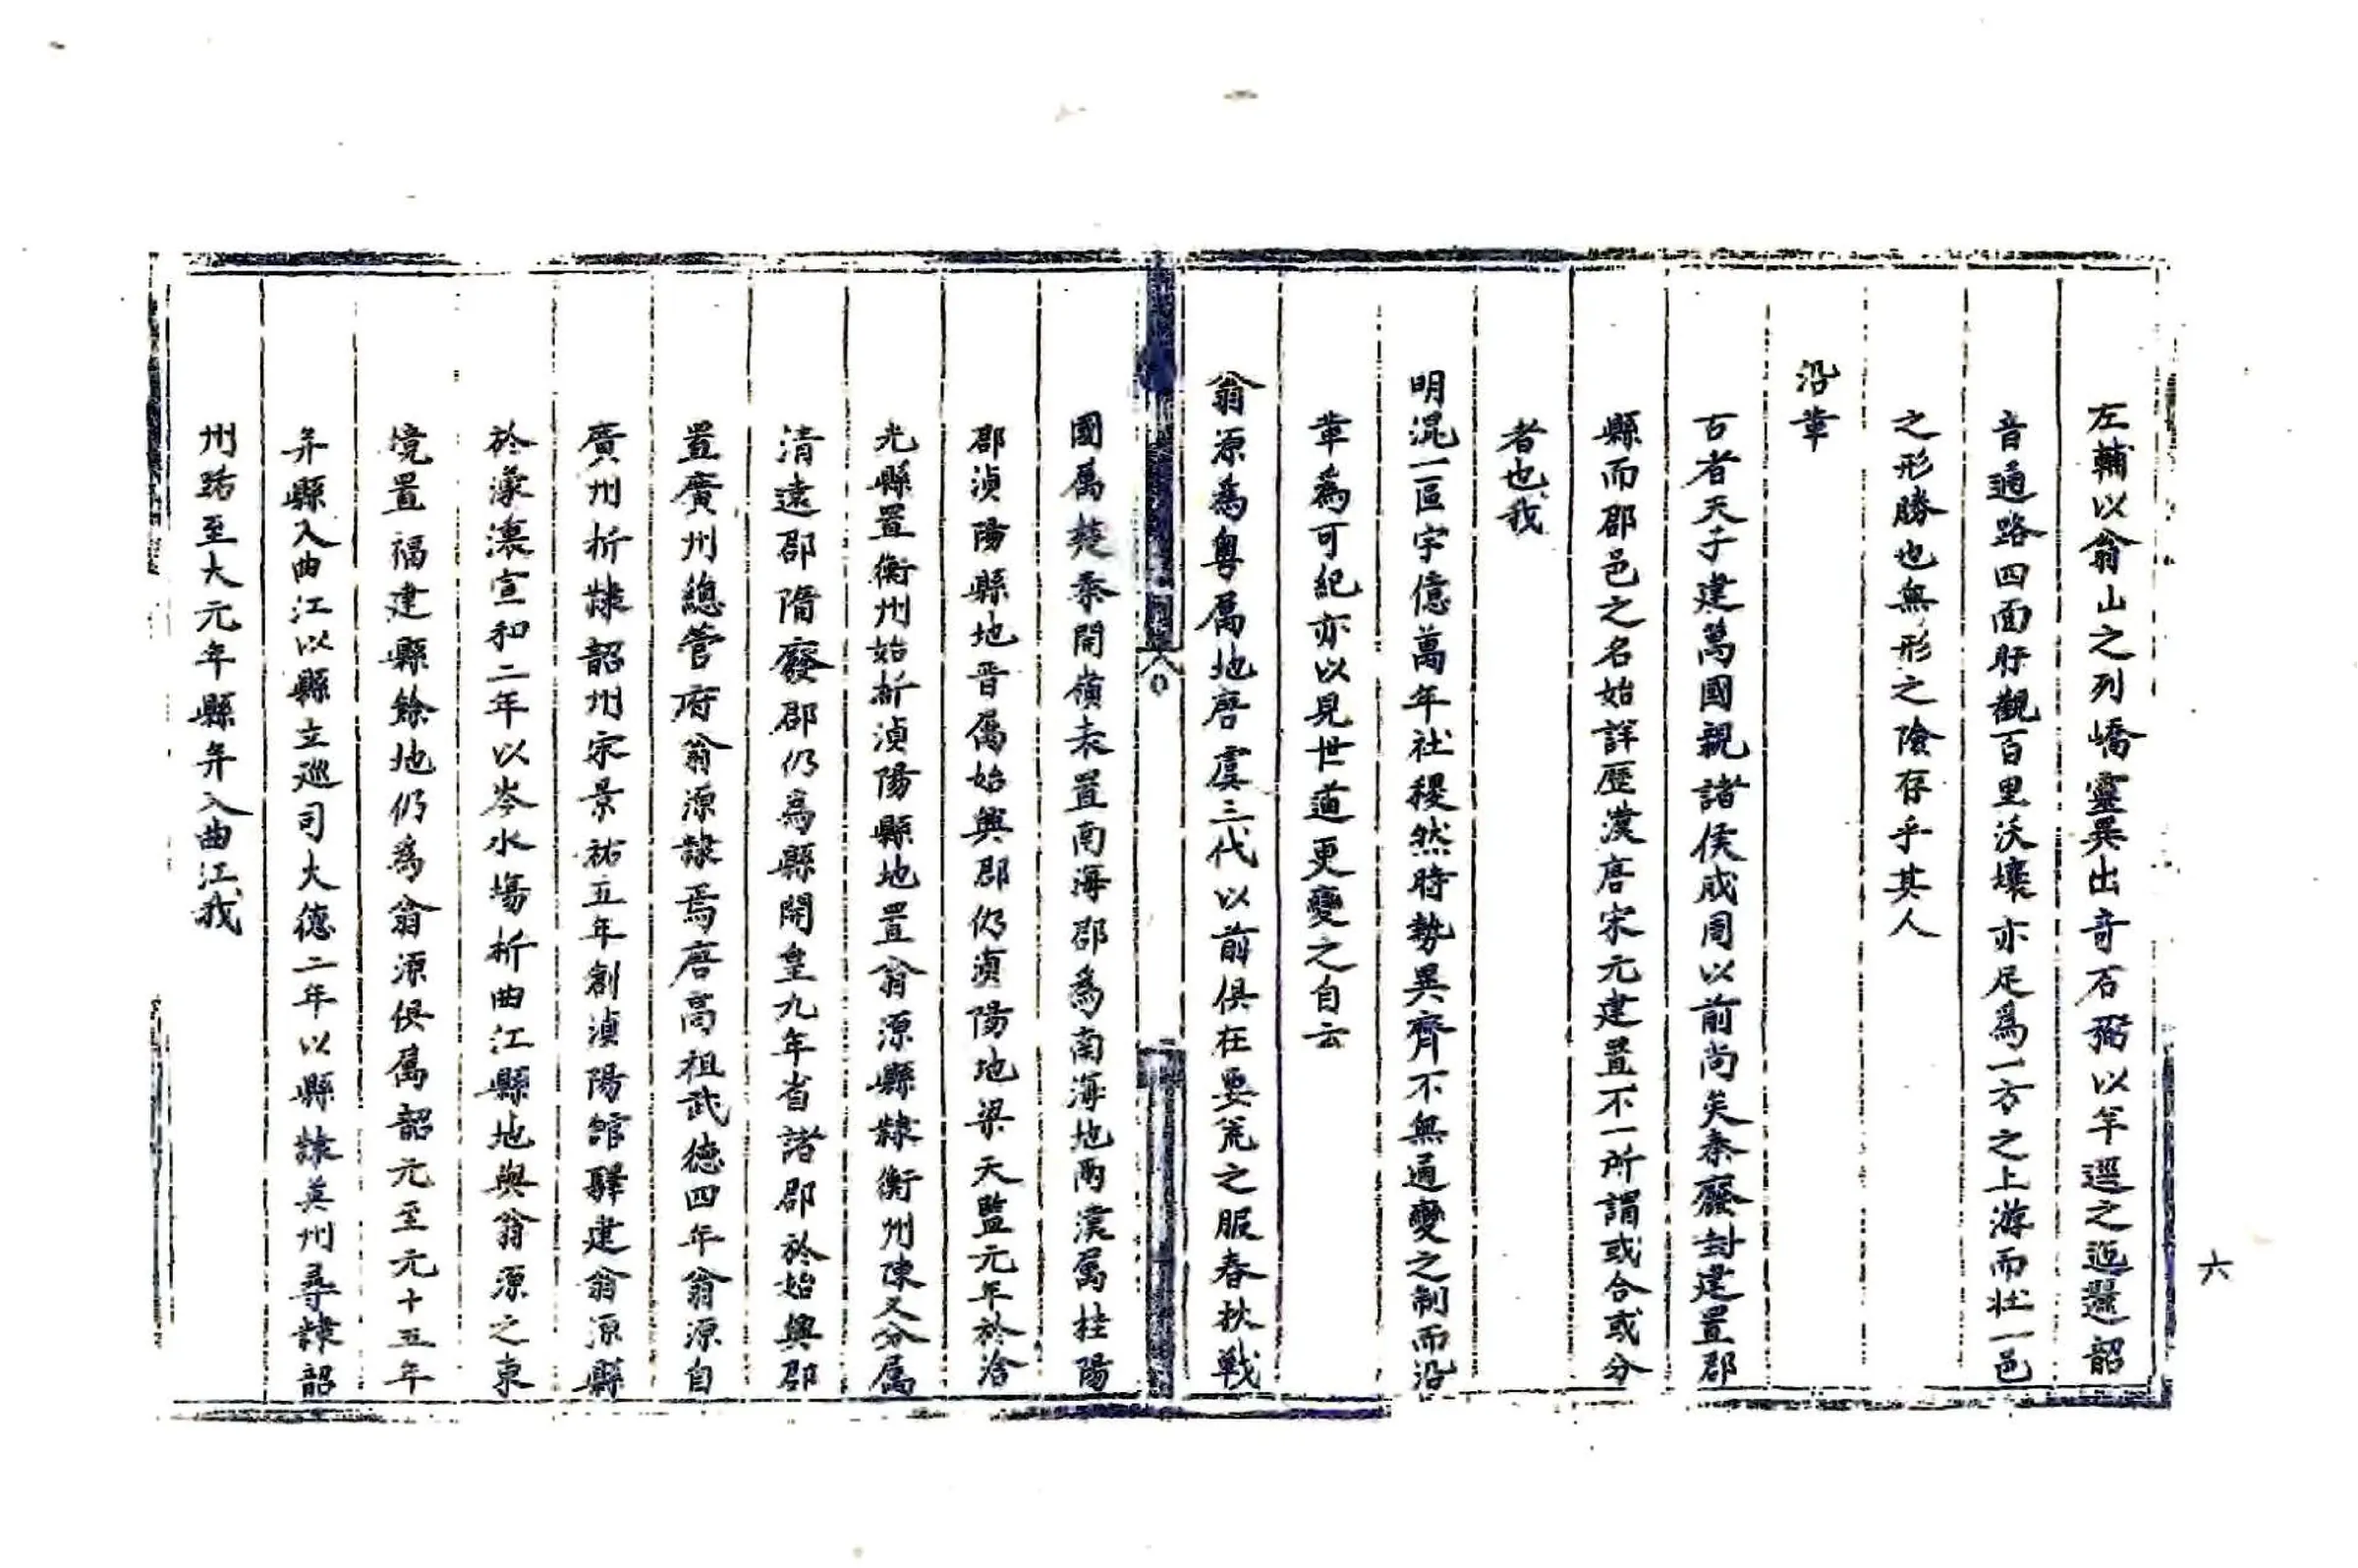 左輔以翁山之列嶠靈異出竒石弼以羊逕之迤邐韶
音通路四面盱觀百里沃壤亦足爲一方之上游而壯一邑
之形勝也無形之險存乎其人
沿革
古者天子建萬國親諸侯成周以前尚矣秦廢封建置郡
縣而郡邑之名始詳歷漢唐宋元建置不一所謂或合或分
者也我
明混一區宇億萬年社稷然時勢異齊不無通變之制而沿
革為可紀亦以見世道更變之自云
翁源為粤属地唐虞三代以前俱在要荒之服春秋戦
國属楚秦開嶺表置南海郡爲南海地兩漢属桂陽
郡湞陽縣地晋属始興郡仍湞陽地梁天監元年於浛
光縣置衡州始析湞陽縣地置翁源縣隸衡州陳又分属
清遠郡隋廢郡仍爲縣開皇九年省諸郡於始興郡
置廣州總管府翁源隸焉唐高祖武德四年翁源自
廣州析隸韶州宋景祐五年創湞陽舘驛建翁源縣
於濛瀼宣和二年以岑水塲析曲江縣地與翁源之東
境置福建縣餘地仍為翁源俱属韶元至元十五年
并縣入曲江以縣立巡司大德二年以縣隸英州尋隸韶
州路至大元年縣并入曲江我
六